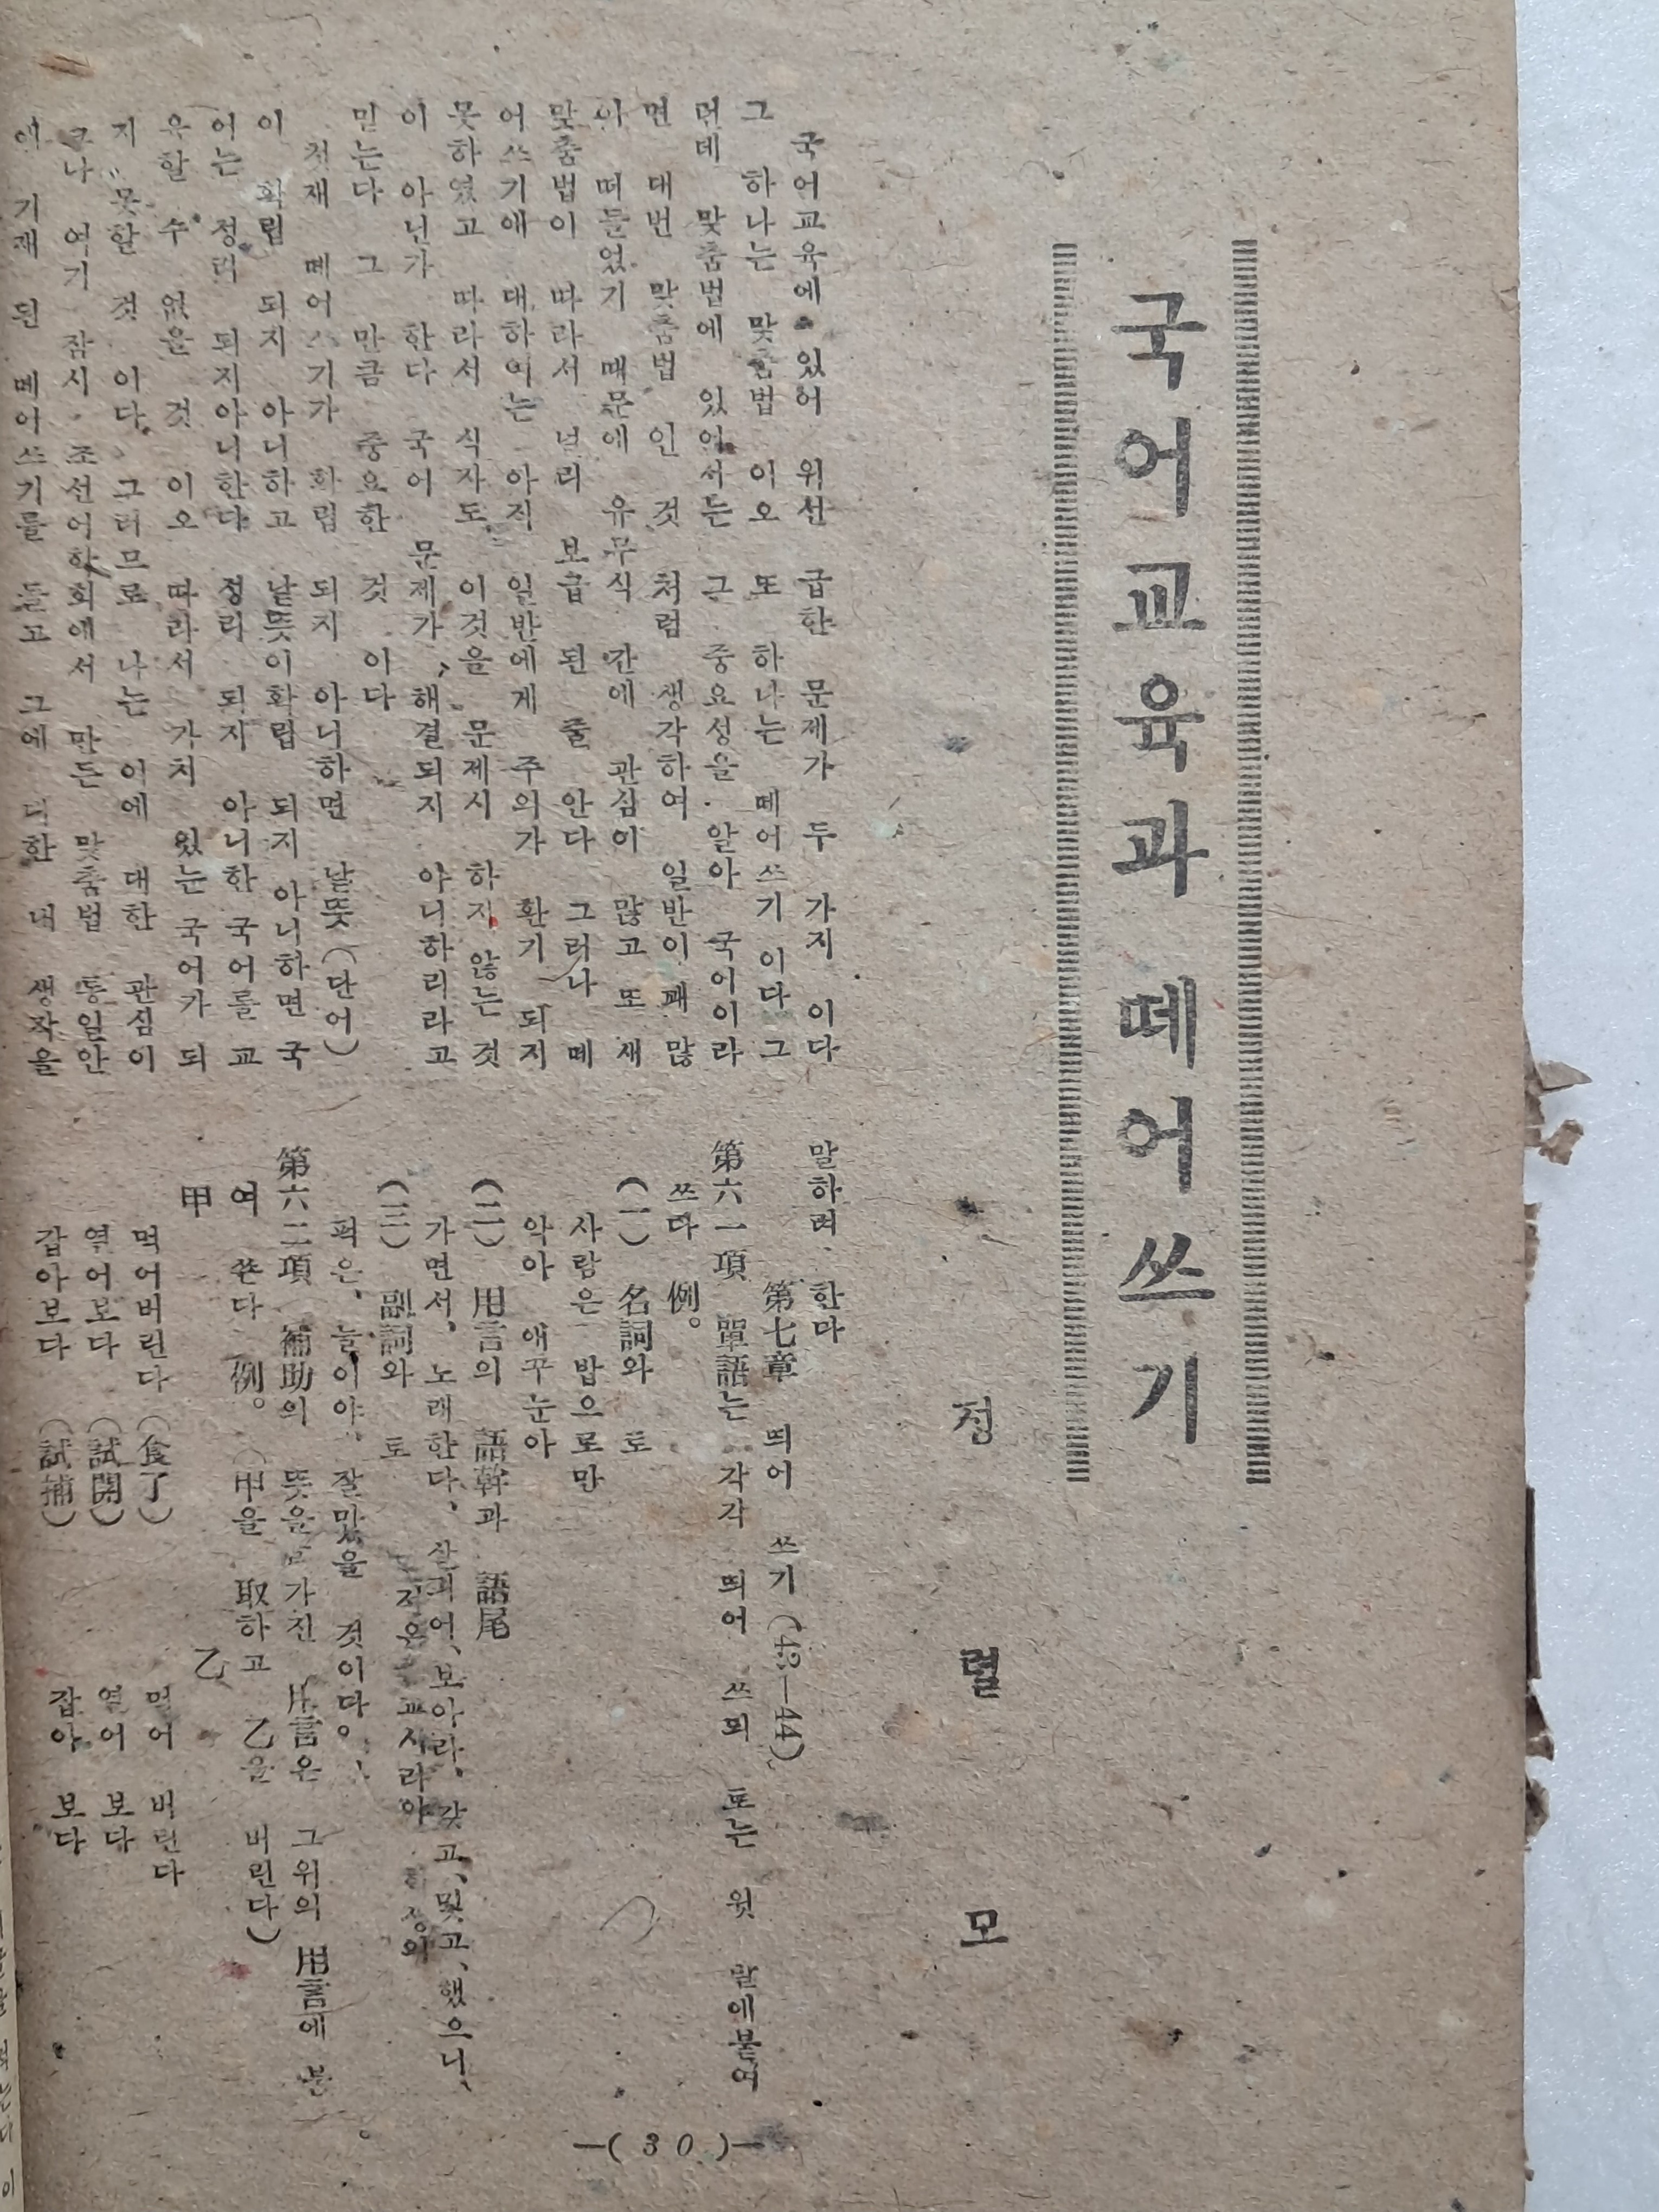 국어교육과 떼어쓰기
정 렬 모
국어교육에 있어 위선 급한 문제가 두 가지 이다
그 하나는 맞춤법 이오 또 하나는 떼어쓰기 이다 그
런데 맞춤법에 있어서든 근 중요성을 알아 국어이라
면 대번 맞춤법 인 것 처럼 생각하여 일반이 꽤 많
이 떠들었기 때문에 유무식 간에 관심이 많고 또 새
맞춤법이 따라서 널리 보급 된 줄 안다 그러나 떼
어쓰기에 대하여는 아직 일반에게 주의가 환기 되지
못하였고 따라서 식자도 이것을 문제시 하지 않는 것
이 아닌가 한다 국어 문제가, 해결되지 아니하리라고
믿는다 그 만큼 중요한 것 이다
첫재 떼어쓰기가 확립 되지 아니하면 낱뜻(단어)
이 확립 되지 아니하고 낱뜻이확립 되지 아니하면 국
어는 정리 되지아니한다 정리 되지 아니한 국어를 교
육할 수 없을 것 이오 따라서 가치 있는 국어가 되
지 못할 것 이다. 그러므로 나는 이에 대한 관심이
크나 여기 잠시 조선어학회에서 만든 맞춤법 통일안
에 기재 된 떼어쓰기를 들고 그에 대한 내 생각을
말하려 한다
第七章 띄어 쓰기 (43—44)
第六一項 單語는 각각 띄어 쓰되 토는 윗 말에붙여
쓰다 例。
(一) 名詞와 토
사람은 밥으로만
악아 애꾸눈아
(二) 用言의 語幹과 語尾
가면서, 노래한다, 살피어, 보아라, 갖고, 및고, 했으니,
(三) 副詞와 토
퍽은, 늘이야, 잘맞을 것이다。
第六二項 補助의 뜻을 가진 用言은 그위의 用言에 붙
여 쓴다 例。 (甲을 取하고 乙을 버린다)
甲 乙
먹어버린다 (食了) 먹어 버린다
열어보다 (試開) 열어 보다
잡아보다 (試捕) 잡아 보다
—(30)—